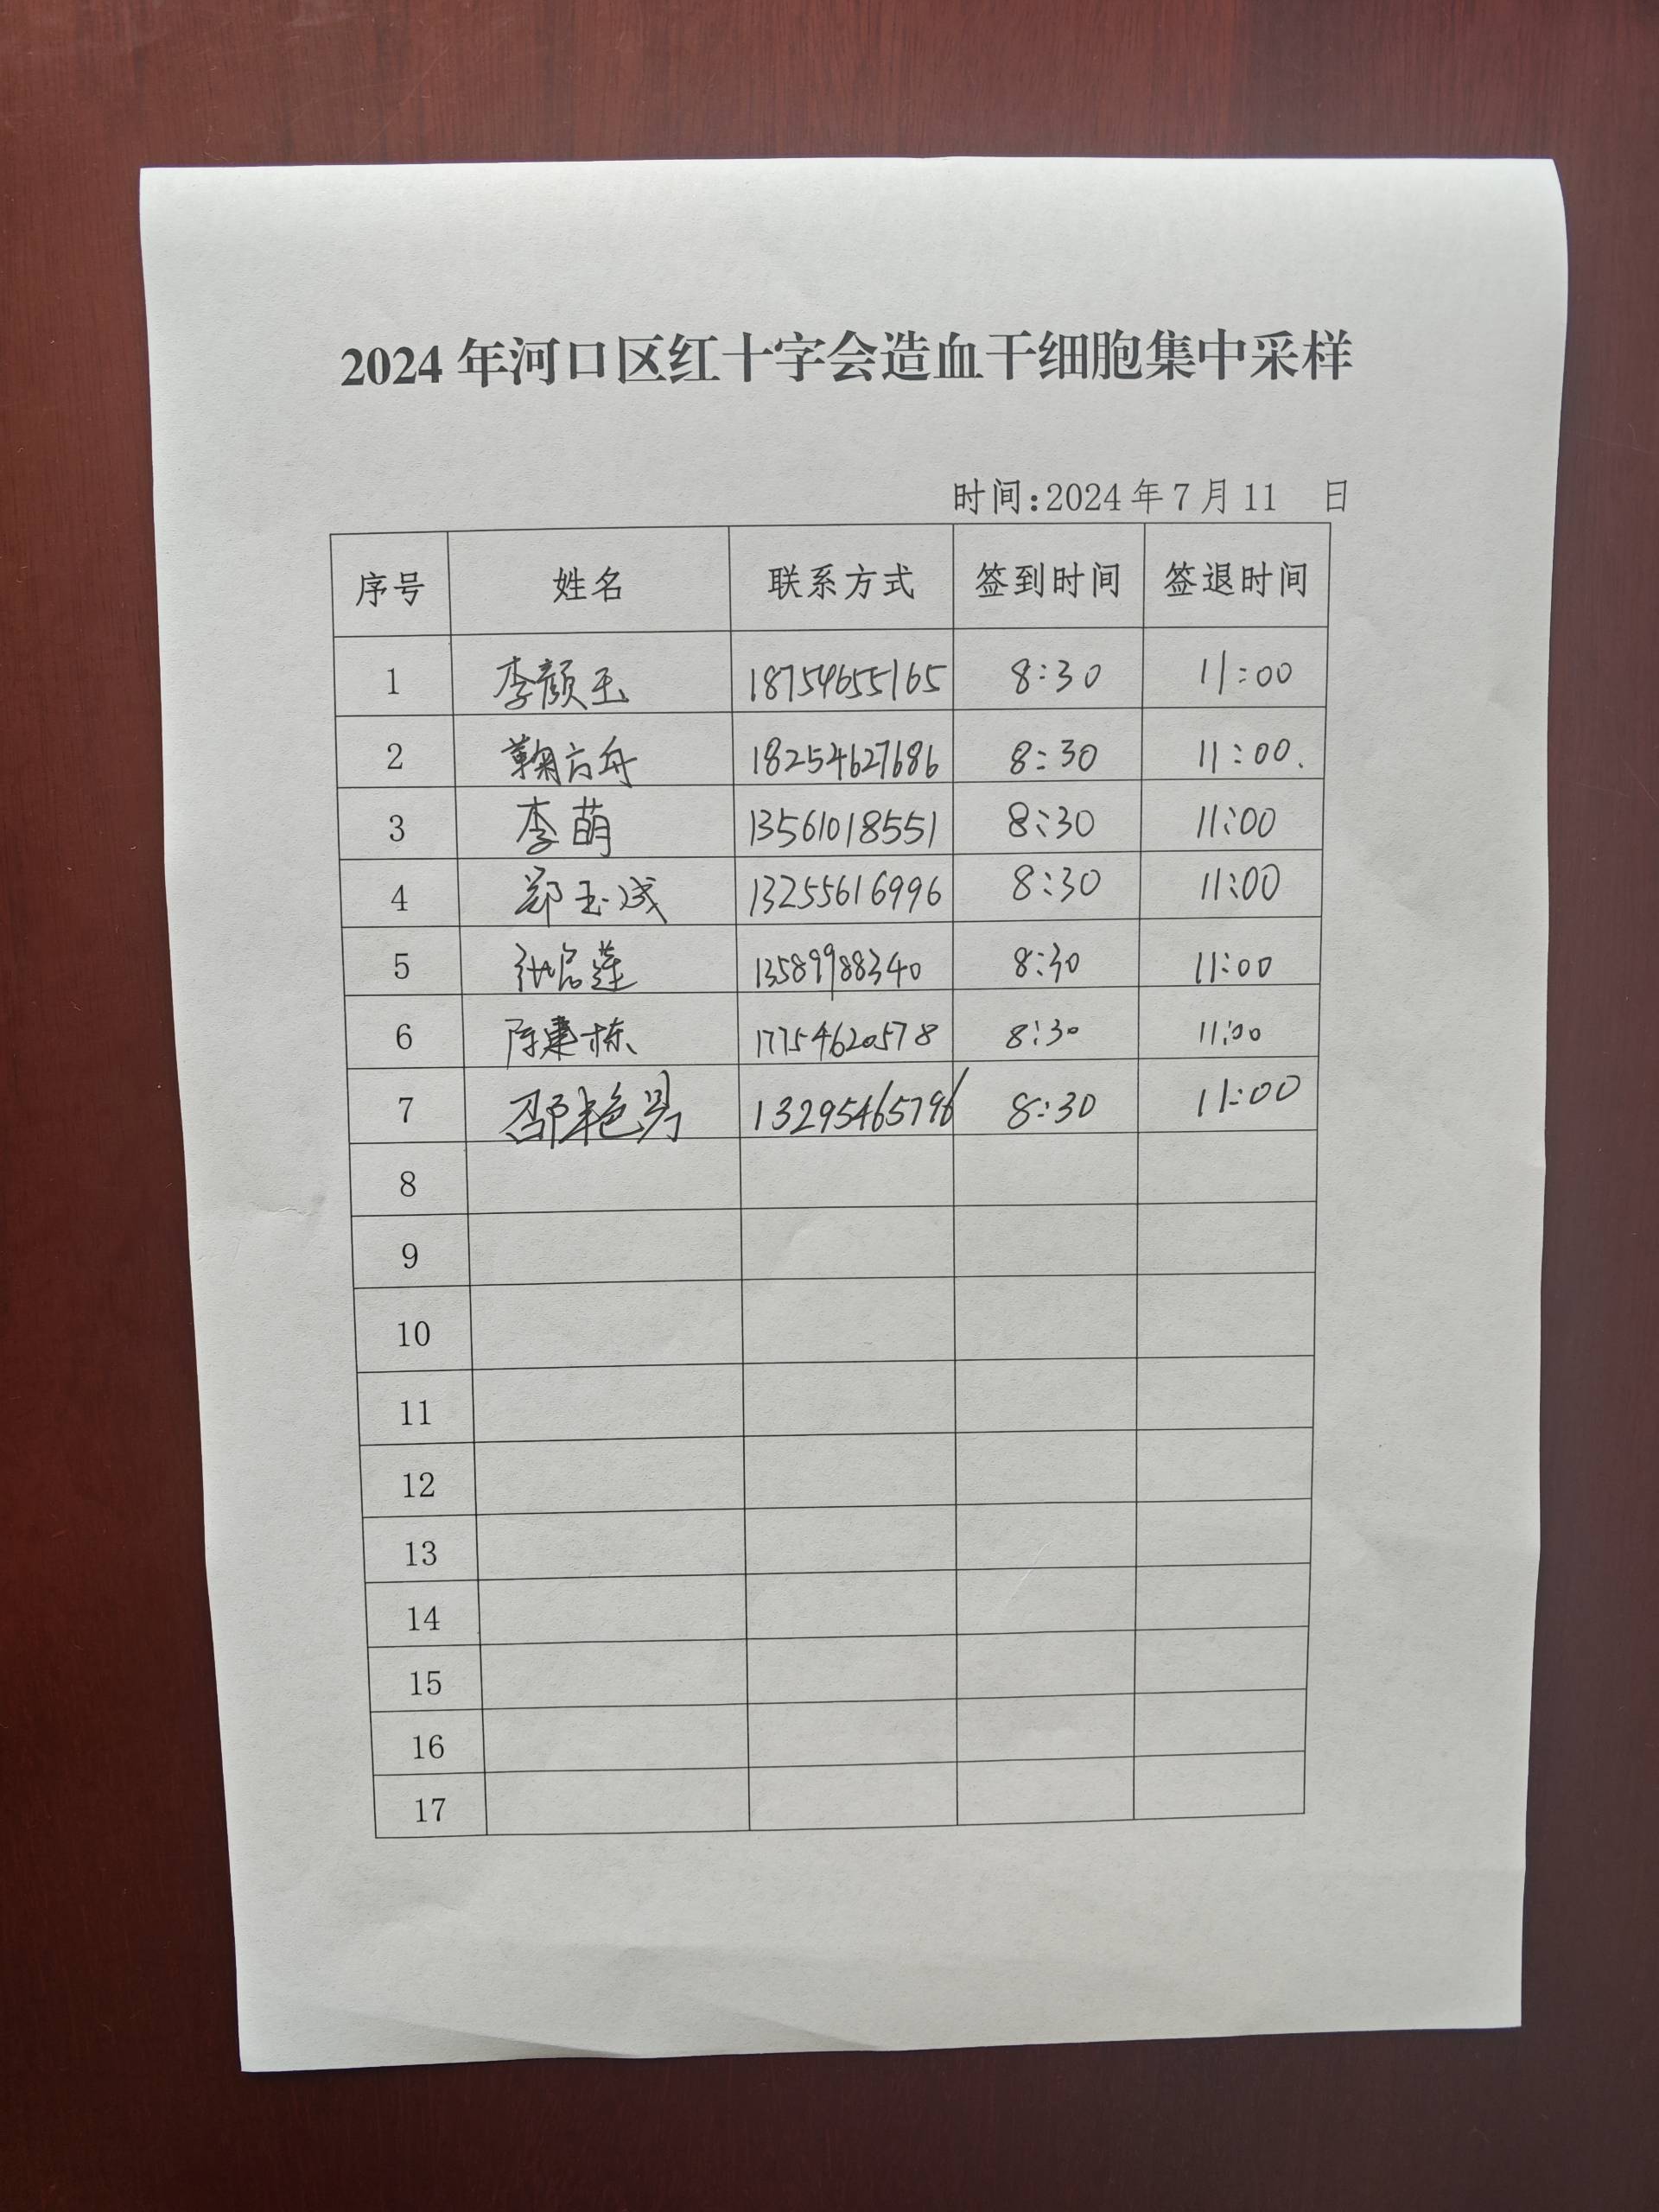 2024年河口区红十字会造血干细胞集中采样
时间:2024年7月11 日
序号 姓名 联系方式 签到时间 签退时间
1 李颜玉 18754655165 8:30 11:00
2 鞠方舟 18254627686 8:30 11:00.
3 李萌 13561018551 8:30 11:00
4 郑玉成 13255616996 8:30 11:00
5 张启莲 13589988340 8:30 11:00
6 陈建栋 17754620578 8:30 11:00
7 邵艳 13295465796 8:30 11:00
8
9
10
11
12
13
14
15
16
17